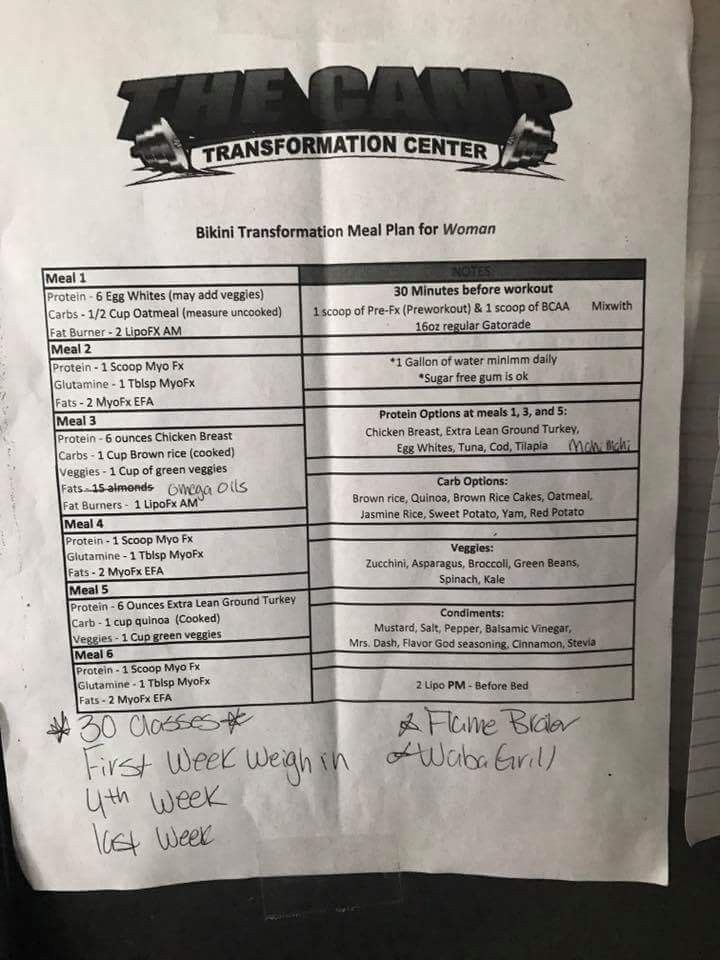 THE CAMP
TRANSFORMATION CENTER
Bikini Transformation Meal Plan for Woman
Meal 1
Protein - 6 Egg Whites (may add veggies)
Carbs - 1/2 Cup Oatmeal (measure uncooked)
Fat Burner - 2 LipoFX AM
Meal 2
Protein - 1 Scoop Myo Fx
Glutamine - 1 Tblsp MyoFx
Fats - 2 MyoFx EFA
Meal 3
Protein - 6 ounces Chicken Breast
Carbs - 1 Cup Brown rice (cooked)
Veggies - 1 Cup of green veggies
Fats - 15 almonds Omega Oils
Fat Burners - 1 LipoFX AM
Meal 4
Protein - 1 Scoop Myo Fx
Glutamine - 1 Tblsp MyoFx
Fats - 2 MyoFx EFA
Meal 5
Protein - 6 Ounces Extra Lean Ground Turkey
Carb - 1 cup quinoa (Cooked)
Veggies - 1 Cup green veggies
Meal 6
Protein - 1 Scoop Myo Fx
Glutamine - 1 Tblsp MyoFx
Fats - 2 MyoFx EFA
NOTES
30 Minutes before workout
1 scoop of Pre-Fx (Preworkout) & 1 scoop of BCAA Mixwith
16oz regular Gatorade
*1 Gallon of water minimm daily
*Sugar free gum is ok
Protein Options at meals 1, 3, and 5:
Chicken Breast, Extra Lean Ground Turkey,
Egg Whites, Tuna, Cod, Tilapia Mahi Mahi
Carb Options:
Brown rice, Quinoa, Brown Rice Cakes, Oatmeal,
Jasmine Rice, Sweet Potato, Yam, Red Potato
Veggies:
Zucchini, Asparagus, Broccoli, Green Beans,
Spinach, Kale
Condiments:
Mustard, Salt, Pepper, Balsamic Vinegar,
Mrs. Dash, Flavor God seasoning, Cinnamon, Stevia
2 Lipo PM - Before Bed
* 30 Classes *
First Week Weigh in
4th Week
last Week
* Flame Broiler
* Waba Grill